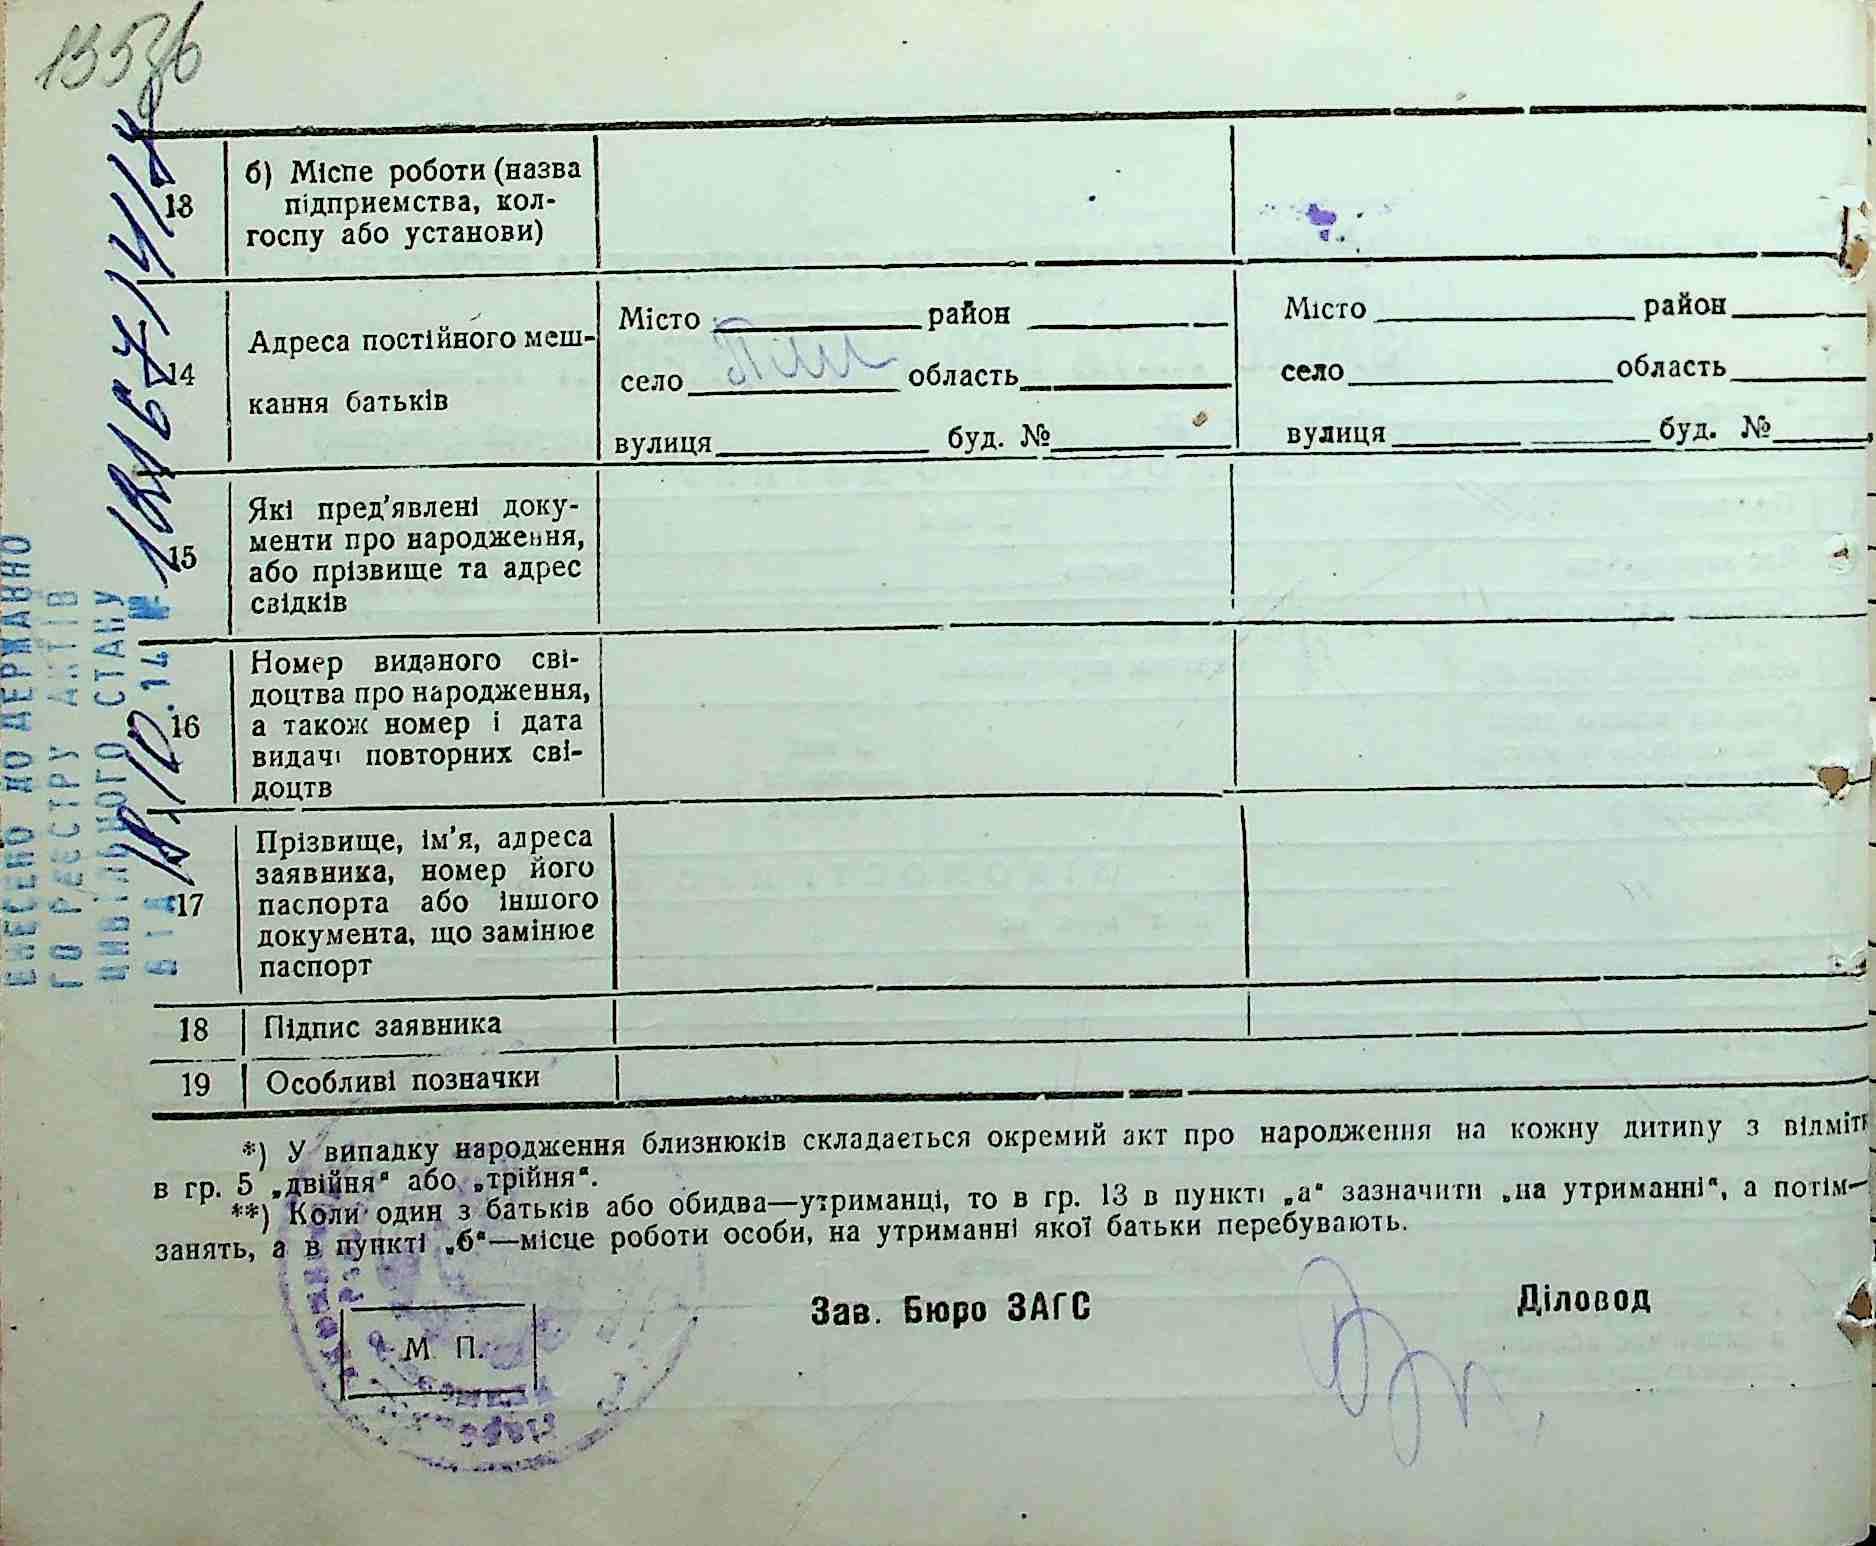 13
б) Міспе роботи (назва
підприємства, кол-
госпу або установи)
14
Адреса постійного меш-
кання батьків
Місто район
село область
вулиця буд. №
Місто район
село область
вулиця буд. №
15
Які пред'явлені доку-
менти про народження,
або прізвище та адрес
свідків
16
Номер виданого сві-
доцтва про народження,
а також номер і дата
видачі повторних сві-
доцтв
17
Прізвище, ім'я, адреса
заявника, номер його
паспорта або іншого
документа, що замінює
паспорт
18 Підпис заявника
19 Особливі позначки
*) У випадку народження близнюків складається окремий акт про народження на кожну дитину з відміт
в гр. 5 „двійня“ або „трійня“.
**) Коли один з батьків або обидва—утриманці, то в гр. 13 в пункті „а“ зазначити „на утриманні“, а потім—
занять, а в пункті „б“—місце роботи особи, на утриманні якої батьки перебувають.
М. П.
Зав. Бюро ЗАГС
Діловод
ВНЕСЕНО ДО ДЕРЖАВНО
ГО РЕЄСТРУ АКТІВ
ЦИВІЛЬНОГО СТАНУ